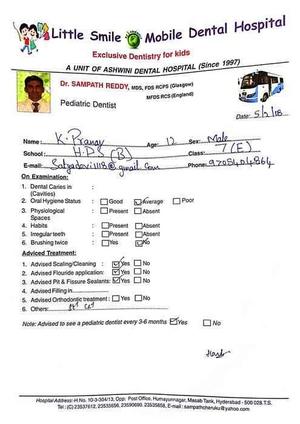 Little Smile Mobile Dental Hospital
Exclusive Dentistry for kids
A UNIT OF ASHWINI DENTAL HOSPITAL (Since 1997)
Dr. SAMPATH REDDY, MDS, FDS RCPS (Glasgow)
MFDS RCS (England)
Pediatric Dentist
Date:
Name: K. Pranay Age: 12 Sex: Male
School: H.P.S (B) Class: 7 (E)
E-mail: @gmail.com Phone:
On Examination:
1. Dental Caries in : (Cavities)
2. Oral Hygiene Status : Good Average Poor
3. Physiological : Present Absent
Spaces
4. Habits : Present Absent
5. Irregular teeth : Present Absent
6. Brushing twice : Yes No
Adviced Treatment:
1. Advised Scaling/Cleaning : Yes No
2. Advised Flouride application: Yes No
3. Advised Pit & Fissure Sealants: Yes No
4. Advised Filling in
5. Advised Orthodontic treatment : Yes No
6. Others:
Note: Advised to see a pediatric dentist every 3-6 months Yes No
Hospital Address: H No. 10-3-304/13, Opp. Post Office, Humayunnagar, Masab Tank, Hyderabad - 500 028.T.S.
Tel: (C) 23537612, 23535656, 23590690, 23535858, E-mail: sampathcheruku@yahoo.com